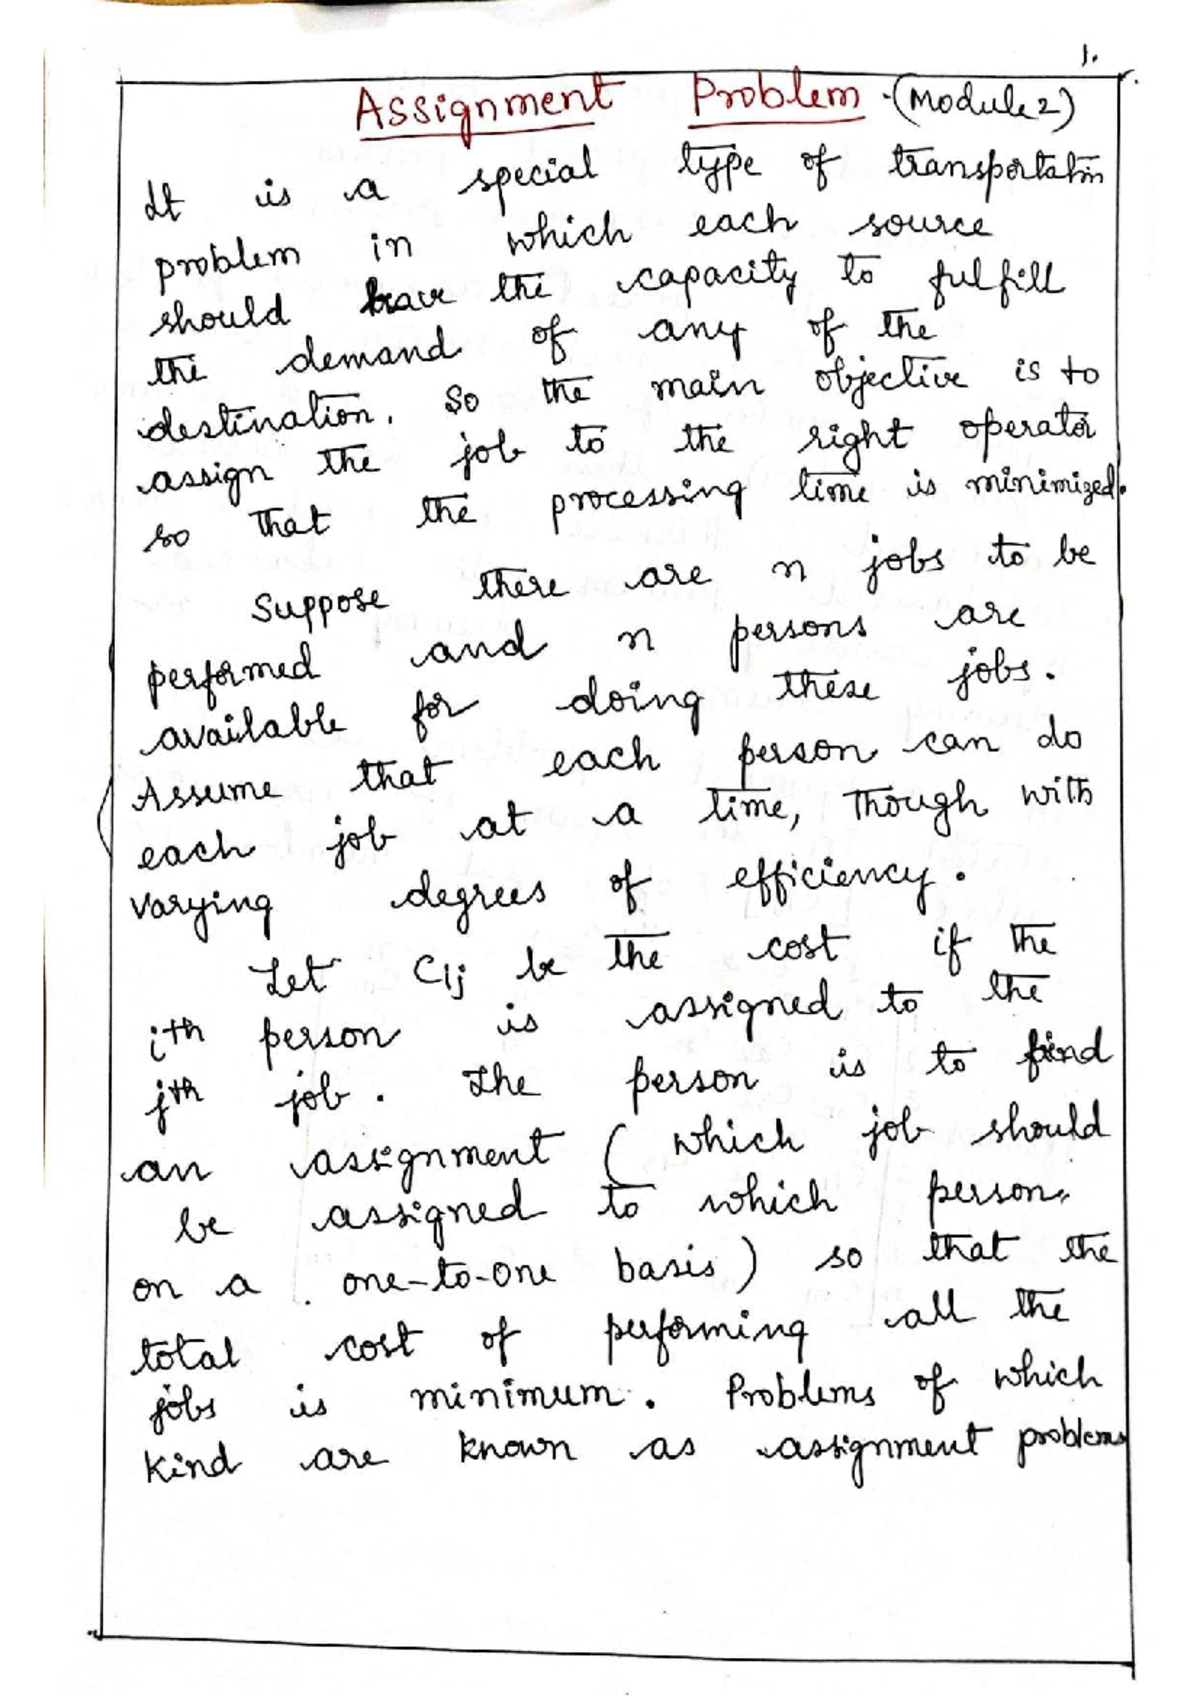 1.
Assignment Problem (Module 2)
It is a special type of transportatin
problem in which each source
should have the capacity to fulfill
the demand of any of the
destination. So the main objective is to
assign the job to the right operator
so that the processing time is minimized.
Suppose there are n jobs to be
performed and n persons are
available for doing these jobs.
Assume that each person can do
each job at a time, though with
varying degrees of efficiency.
Let Cij be the cost if the
ith person is assigned to the
jth job. The person is to find
an assignment (which job should
be assigned to which person
on a one-to-one basis) so that the
total cost of performing all the
jobs is minimum. Problems of which
kind are known as assignment problems